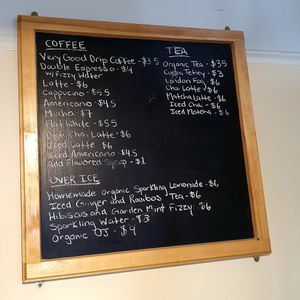 COFFEE
Very Good Drip Coffee - $3.5
Double Espresso - $4
w/Fizzy Water
Latte - $6
Cappucino - $5.5
Americano - $4.5
Mocha - $7
Flat White - $5.5
Chai Latte - $6
Iced Latte $6
Iced Americano - $4.5
Add Flavored Syrup - $1
TEA
Organic Tea - $3.5
Tetley - $3
London Fog - $6
Chai Latte - $6
Matcha Latte - $6
Iced Chai - $6
Iced Matcha - $6
OVER ICE
Homemade Organic Sparkling Lemonade - $6
Iced Ginger and Rooibos Tea - $6
Hibiscus and Garden Mint Fizzy $6
Sparkling Water - $3
Organic OJ - $4